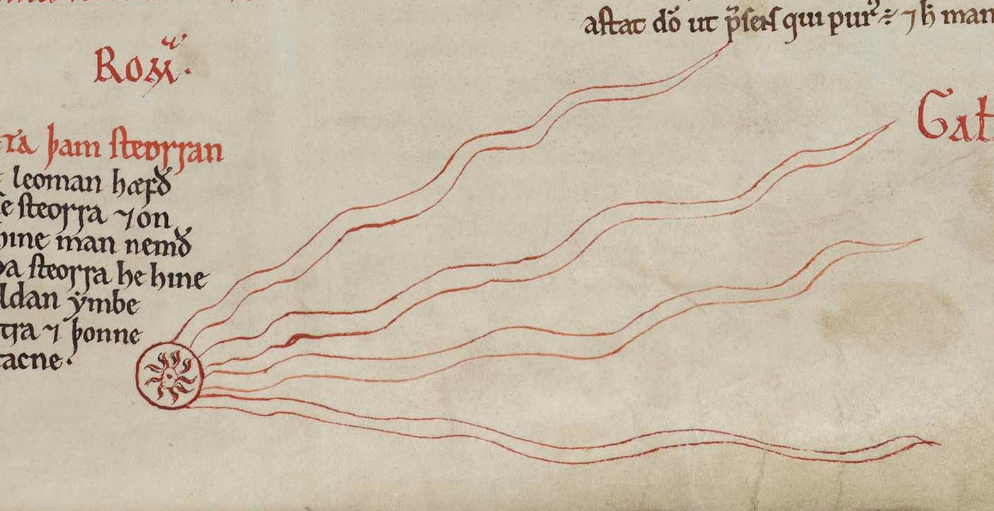 astat dō ut p̄sens qui pur⁊ ⁊ ħ man
Rom̄
Gat
ra þam steorran
leoman hæfð
se steorra ⁊ on
hine man nemð
ða steorra he hine
ldan ymbe
tra ⁊ þonne
tacne.